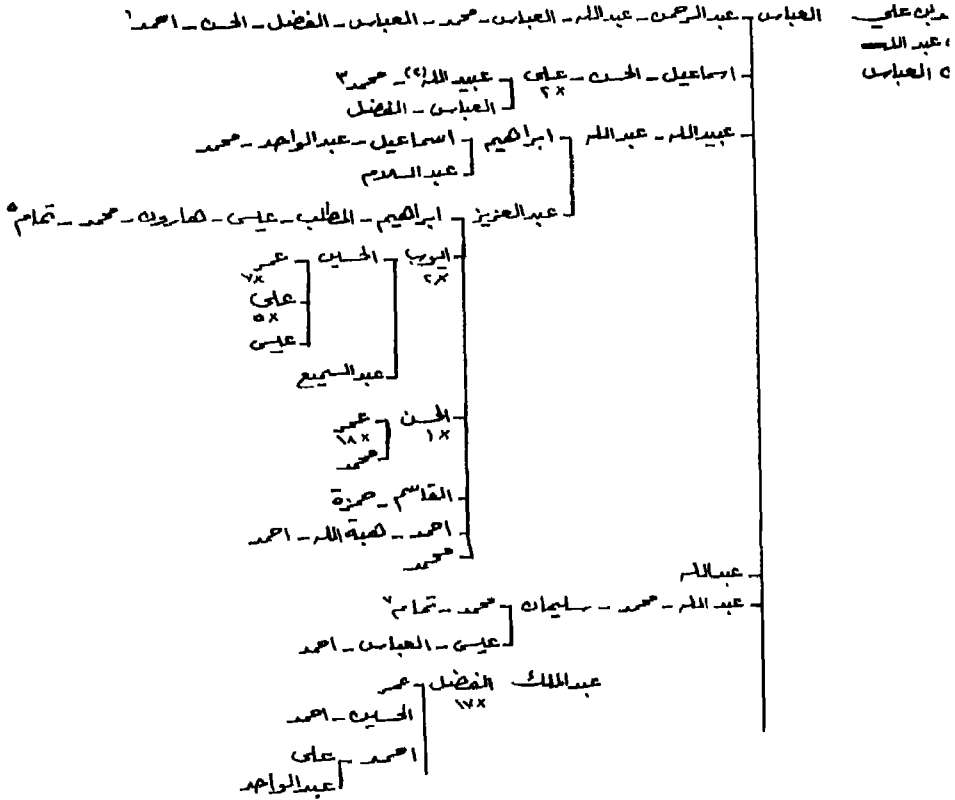 بن علي العباس عبد الرحمن - عبد الله - العباس - محمد - العباس - الفضل - الحسن - احمد ١
عبد الله
العباس
اسماعيل - الحسن - علي عبيد الله (٢) - محمد ٣
×٢
العباس - الفضل
عبيد الله - عبد الله ابراهيم اسماعيل - عبد الواحد - محمد
عبد السلام
عبد العزيز ابراهيم - المطلب - عيسى - هارون - محمد - تمام ٥
ايوب الحسين عمر
×٢ ×٧
علي
×٥
عيسى
عبد السميع
الحسن عمر
×١ ×١٨
محمد
القاسم - حمزة
احمد - هبة الله - احمد
محمد
عبد الله
عبد الله - محمد - سليمان محمد - تمام ٧
عيسى - العباس - احمد
عبد الملك الفضل عمر
×١٧
الحسين - احمد
احمد علي
عبد الواحد